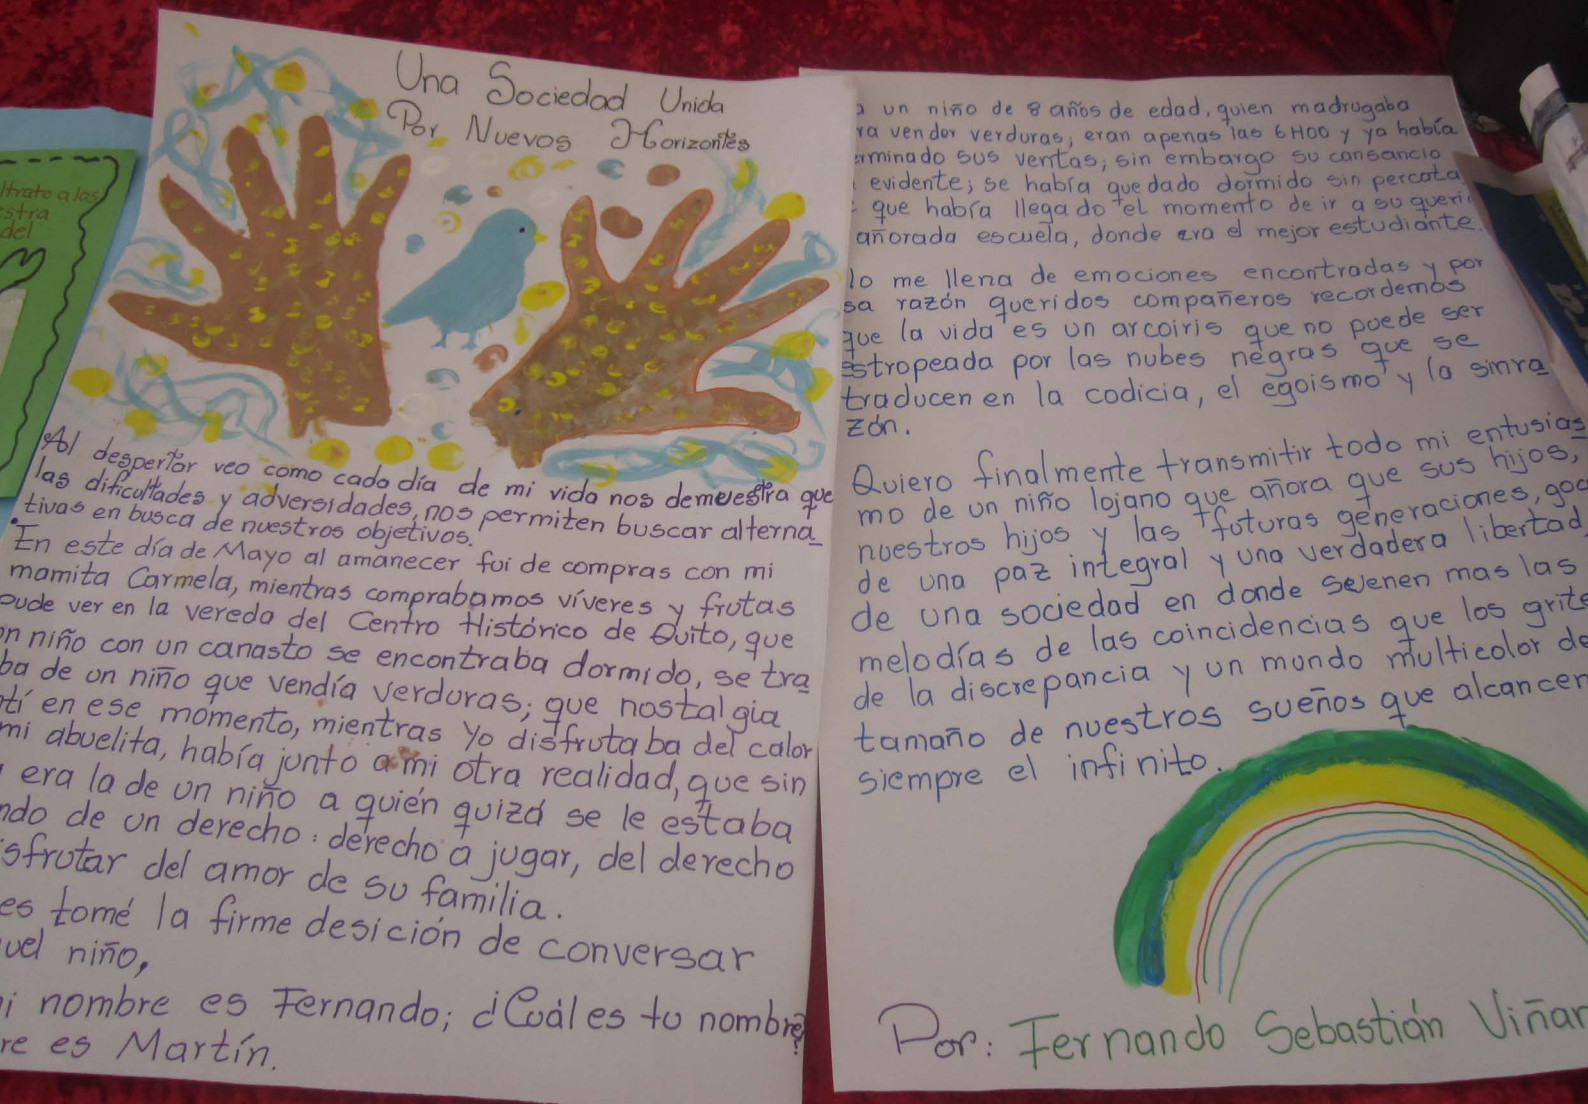 ltrato a las
stra
del
Una Sociedad Unida
Por Nuevos Horizontes
Al despertar veo como cada día de mi vida nos demuestra que
las dificultades y adversidades, nos permiten buscar alterna
tivas en busca de nuestros objetivos.
En este día de Mayo al amanecer fui de compras con mi
mamita Carmela, mientras comprabamos víveres y frutas
pude ver en la vereda del Centro Histórico de Quito, que
un niño con un canasto se encontraba dormido, se tra
ba de un niño que vendía verduras; que nostalgia
tí en ese momento, mientras Yo disfrutaba del calor
mi abuelita, había junto a mi otra realidad, que sin
era la de un niño a quién quizá se le estaba
ndo de un derecho: derecho a jugar, del derecho
isfrutar del amor de su familia.
es tomé la firme desición de conversar
uel niño,
i nombre es Fernando; ¿Cuál es tu nombre?
re es Martín.
a un niño de 8 años de edad, quien madrugaba
ra vender verduras; eran apenas las 6H00 y ya había
erminado sus ventas; sin embargo su cansancio
evidente; se había quedado dormido sin percata
que había llegado el momento de ir a su queri
añorada escuela, donde era el mejor estudiante.
lo me llena de emociones encontradas y por
sa razón queridos compañeros recordemos
que la vida es un arcoiris que no puede ser
estropeada por las nubes negras que se
traducen en la codicia, el egoismo y la sinra
zón.
Quiero finalmente transmitir todo mi entusias
mo de un niño lojano que añora que sus hijos,
nuestros hijos y las futuras generaciones, goc
de una paz integral y una verdadera libertad,
de una sociedad en donde suenen mas las
melodías de las coincidencias que los grito
de la discrepancia y un mundo multicolor de
tamaño de nuestros sueños que alcancen
siempre el infinito.
Por: Fernando Sebastián Viñan